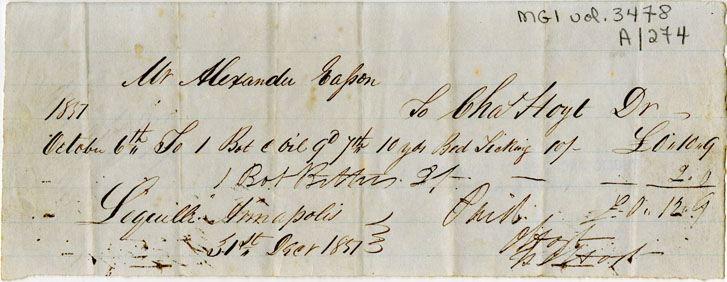 MG1 vol. 3478
A/274
Mr Alexander Easson
1857 To Chas Hoyt Dr
October 6th To 1 Bot C Oil 9d 7th 10 yds Bed Ticking 10/- £0.10.9
1 Bot Bitters 2/- — — 2.0
Lequille Annapolis £0.12.9
31st Decr 1857